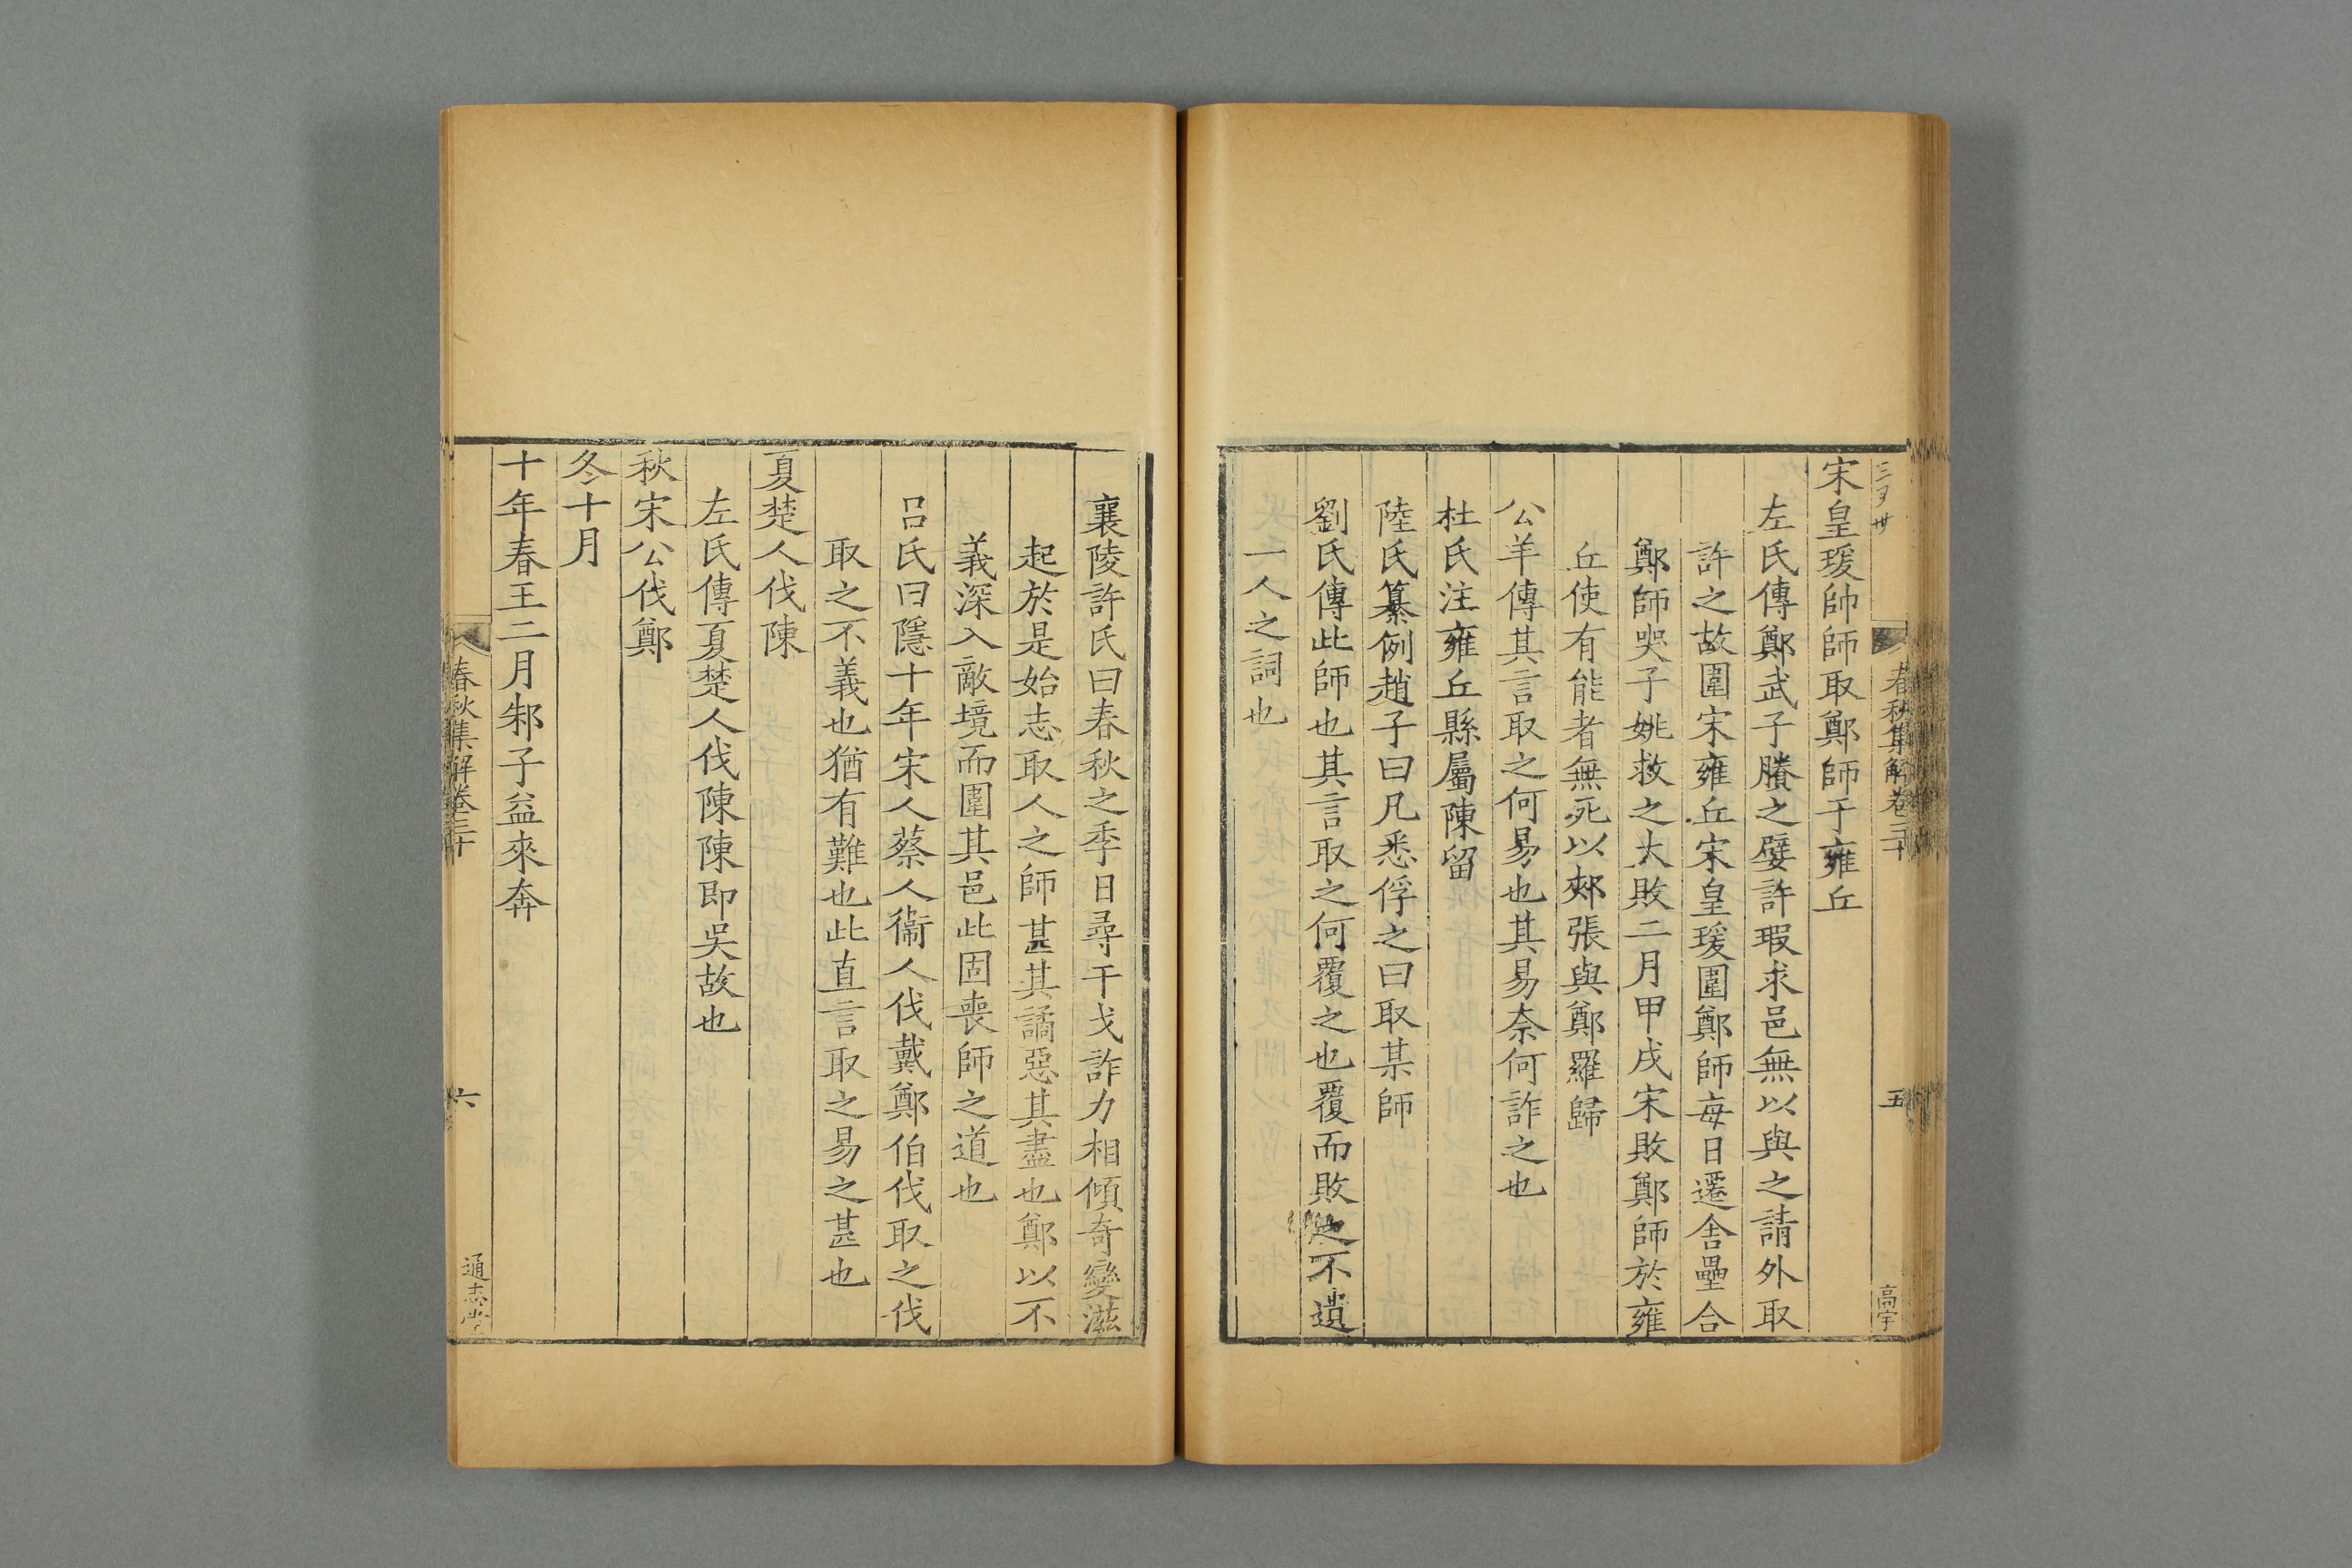 春秋集解卷三十
五
高宇
宋皇瑗帥師取鄭師于雍丘
左氏傳鄭武子賸之嬖許瑕求邑無以與之請外取
許之故圍宋雍丘宋皇瑗圍鄭師每日遷舍壘合
鄭師哭子姚救之大敗二月甲戌宋敗鄭師於雍
丘使有能者無死以郟張與鄭羅歸
公羊傳其言取之何易也其易奈何詐之也
杜氏注雍丘縣屬陳留
陸氏纂例趙子曰凡悉俘之曰取某師
劉氏傳此師也其言取之何覆之也覆而敗之不遺
一人之詞也
襄陵許氏曰春秋之季日尋干戈詐力相傾奇變滋
起於是始志取人之師甚其譎惡其盡也鄭以不
義深入敵境而圍其邑此固喪師之道也
呂氏曰隱十年宋人蔡人衞人伐戴鄭伯伐取之伐
取之不義也猶有難也此直言取之易之甚也
夏楚人伐陳
左氏傳夏楚人伐陳陳即吳故也
秋宋公伐鄭
冬十月
十年春王二月邾子益來奔
春秋集解卷三十
六
通志堂